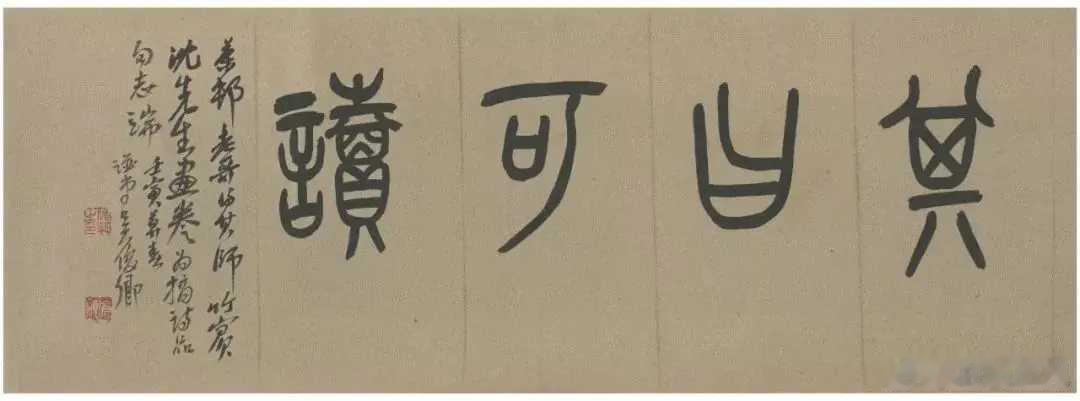 其曰可讀
邨老哥得其師竹賓
沈先生畫卷為摘詩品
句志端
壬寅暮春
吳俊卿